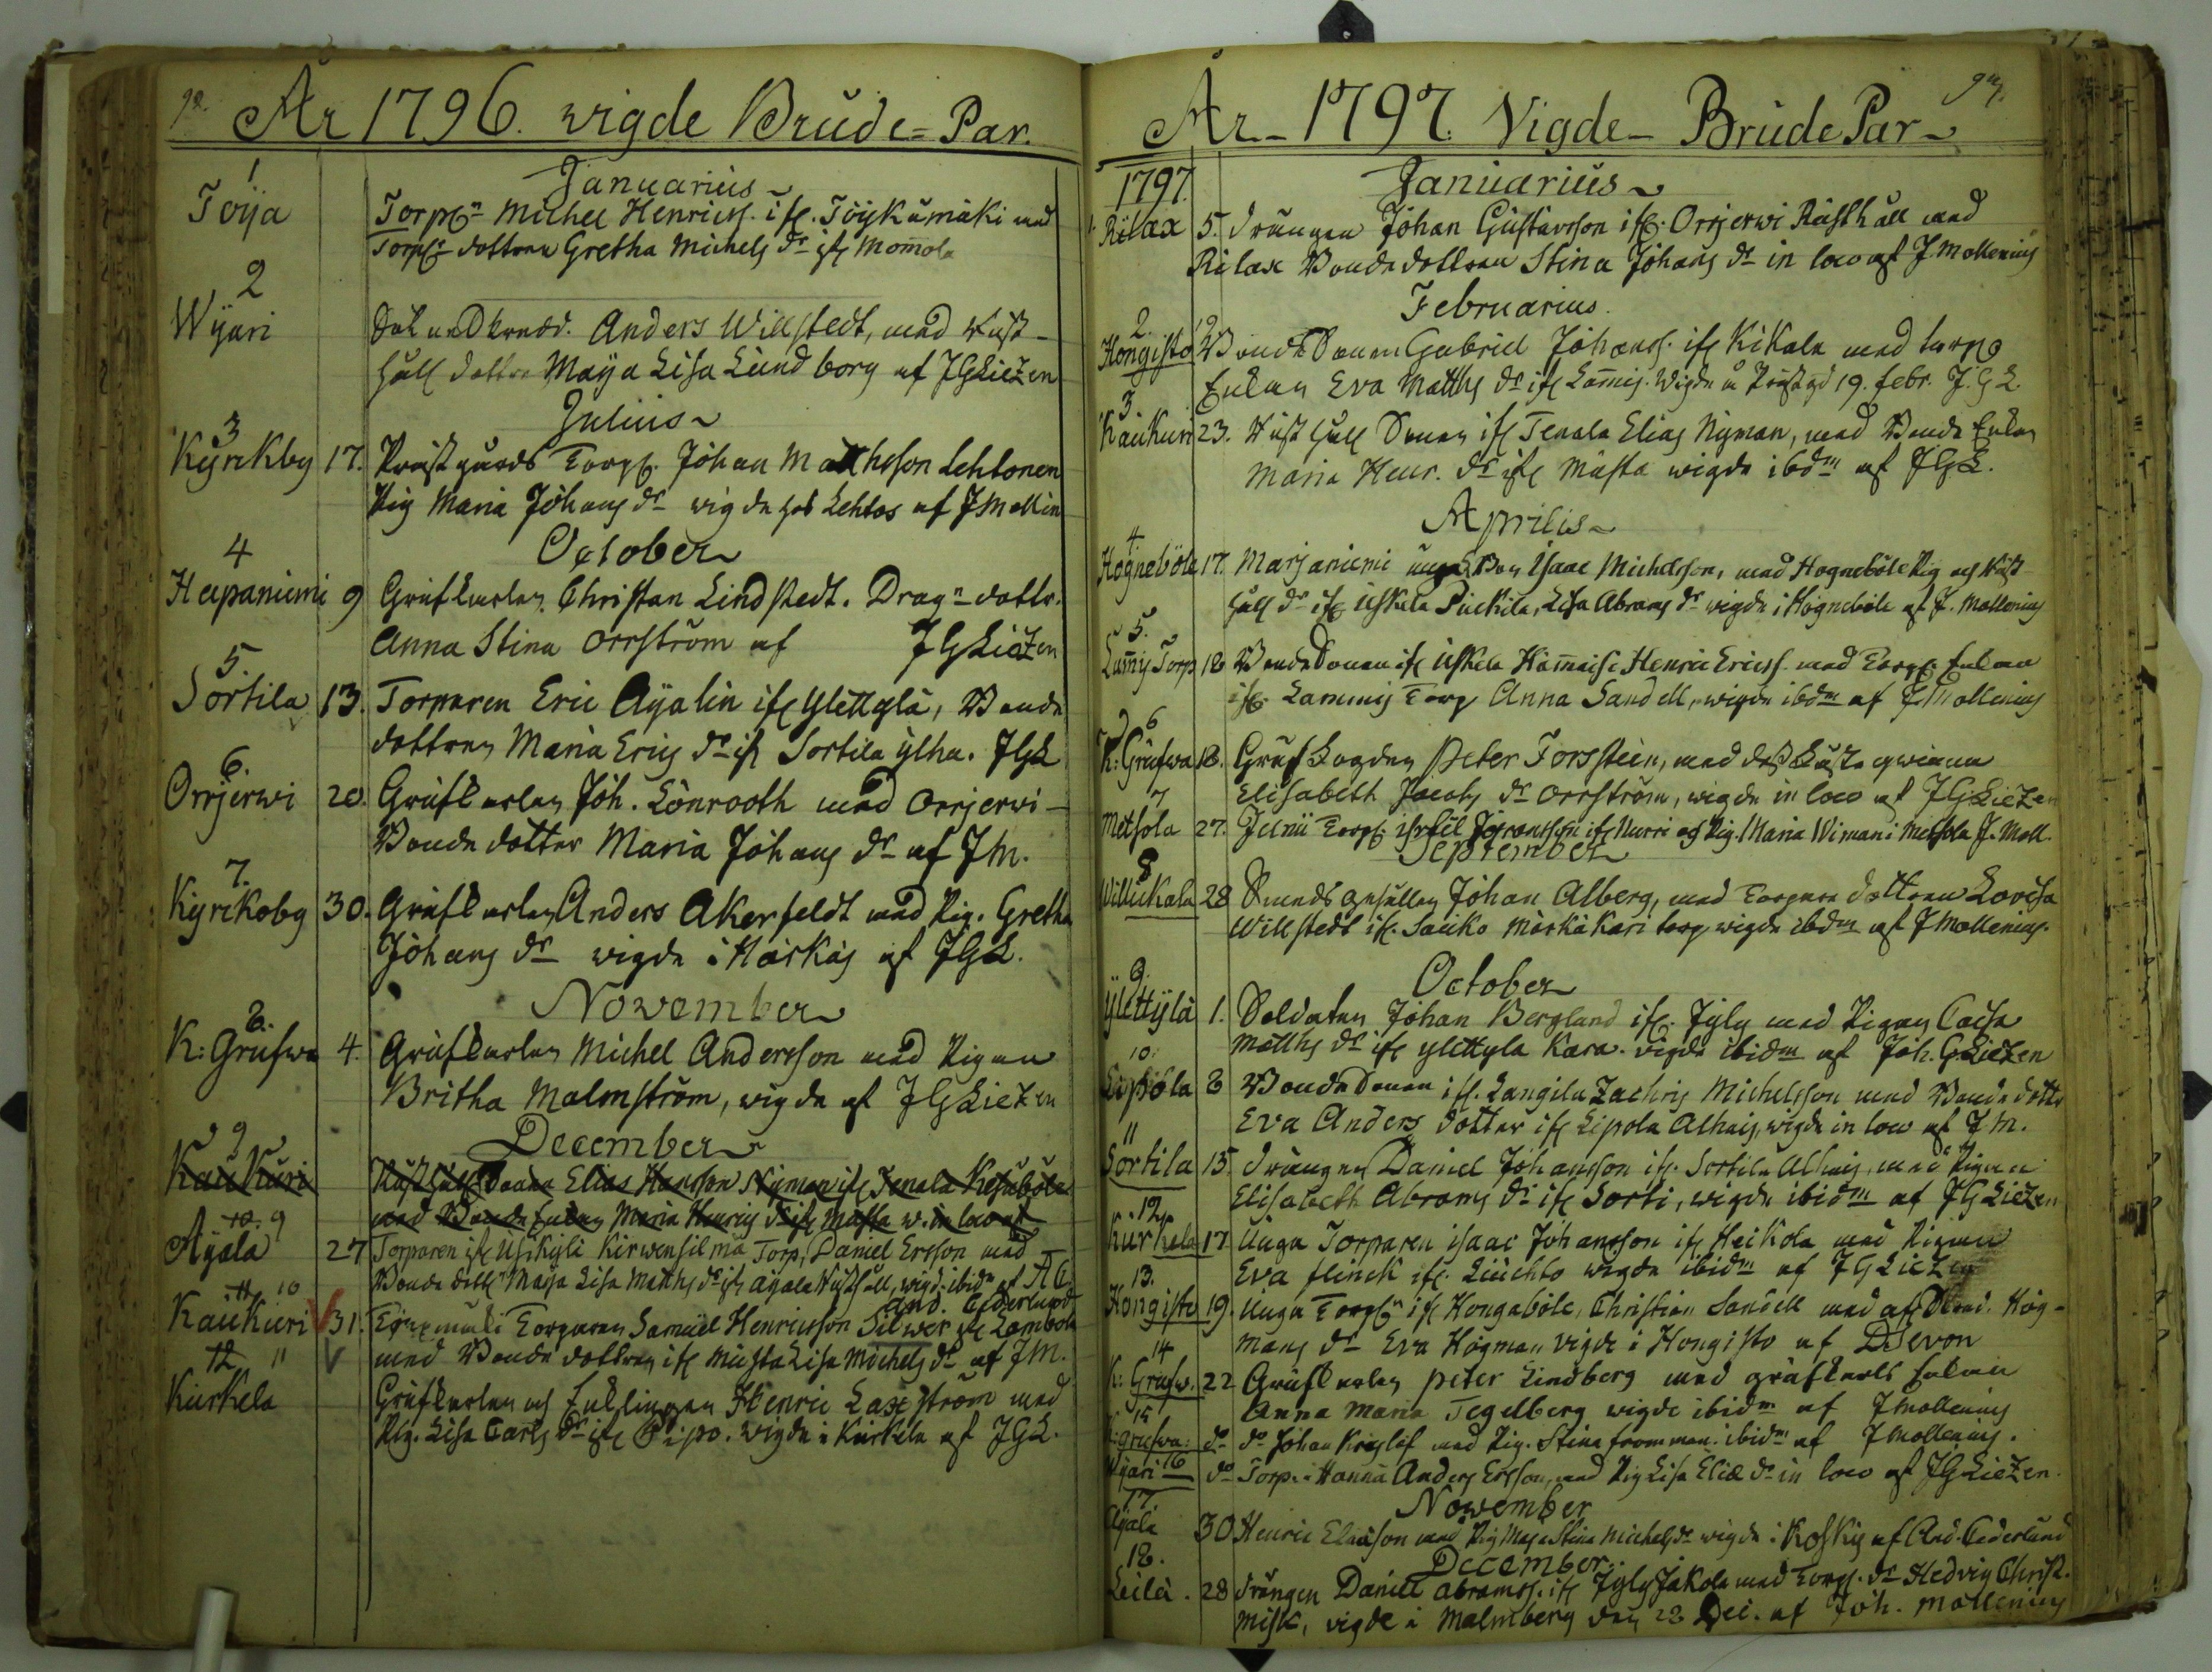 92.
År 1796. wigde Brude=Par.
Januarius
1
Toija
Torp. Michel Henricss. ifr. Töijkumäki med
Torp. dottren Gretha Michels dr ifr Momola
2
Wijari
Anders Willstedt, med Rust-
håll dottr Maija Lisa Lundborg af JGLiezen
Julius
3
Kyrkby 17. Prästgårds Torp. Johan Matthsson Lehtonen
Pig Maria Johans dr wigde hos Lehtos af J Mollin
October
4
Hapaniemi 9 Grufkarlen Christian Lindstedt. Drag. dottr.
Anna Stina Orrström af JGLiezen
5.
Sortila 13. Torparen Eric Ayalin ifr Ylettylä, Bonde
dottren Maria Erics dr ifr Sortila ylha. JGL
6.
Orrjerwi 20. Grufkarlen Joh. Lönrooth med Orrjerwi-
Bonde dotter Maria Johans dr af JM.
7.
Kyrkoby 30. Grufkarlen Anders Akerfeldt med Pig. Gretha
Johans dr wigde i Härkäs af JGL.
November
8.
K: Grufwa 4. Grufkarlen Michel Andersson med Pigan
Britha Malmström, wigde af JGLiezen
December
9
Kaukuri Rusthålls Sonen Elias Hansson Nyman ifr Tenala Kesuböle
med Bonde Enkan Maria Henrics dr ifr Musta w. in loco af
10. 9
Ayala 27 Torparen ifr Uskyli Kirwensilmä Torp, Daniel Ersson med
Bonde dottr Maija Lisa Matths dr ifr Ayala Rusthåll, wigd. ibidm af A C
And. Cederlund
11. 10
Kaukuri 31. Torparen Samuel Henricsson Silwer ifr Lambola
med Bonde dottren ifr Musta Lisa Michels dr af JM.
12 11
Kurkela Grufkarlen och Enklingen Henric Laxström med
Pig. Lisa Carls dr ifr Pipo. wigde i Kurkela af JGL.
94.
År - 1797. Vigde - Brude Par
1797. Januarius
1. Rilax 5. Drängen Johan Gustavsson ifr. Orrjerwi Rusthåll med
Rilax Bonde dottren Stina Johans dr in loco af J. Mollenius
Februarius.
2.
Hongisto 19 Bonde Sonen Gabriel Johanss. ifr Kikala med torp
Enkan Eva Matths dr ifr Lammis. Wigde å Prästgd 19. febr. J. G L.
3
Kaukuri 23. Rusthåll Sonen ifr Tenala Elias Nyman, med Bonde Enkan
Maria Henr. dr ifr Musta wigde ibdm af JGL.
Aprilis
4
Högneböle 17. Marjaniemi unge Bon Isaac Michelsson, med Högneböle Pig och Rust-
håll dr ifr Uskela Puckila, Lisa Abrams dr wigde i Högneböle af J. Mollenius
5.
Lammis Torp 18 Bonde Sonen ifr Uskela Hämmäise Henric Ericss. med Torp. Enkan
ifr. Lammis Torp Anna Sandell, wigde ibdm af J Mollenius
6
K: Grufwa 18. Gruf Fogden Peter Forssteen, med
Elisabeth Jacobs dr Orrström, wigde in loco af JGLiezen
7
Metsola 27. Torp. Israel Jöransson ifr Nurri och Pig. Maria Wiman i Metsola J. Moll.
September
8
Willukala 28 Smeds gesällen Johan Alberg, med Torpare dottren Lovisa
Willstedt ifr. Sauko Märkäkari torp wigde ibdm af J Mollenius.
October
9.
Ylettylä 1. Soldaten Johan Berglund ifr. Jyly med Pigan Caisa
Matths dr ifr Ylettyla Kara. wigde ibidm af Joh. GLiezen
10.
Lipola 8 Bonde Sonen ifr. Langila Zachris Michelsson med Bonde dottr
Eva Anders dotter ifr Lipola Alhais, wigde in loco af J M.
11
Sortila 15. Drängen Daniel Johansson ifr. Sortila Alhais, med Pigan
Elisabeth Abrams dr ifr Sorti, wigde ibidm af JGLiezen
12
Kurkela 17. Unga Torparen Isaac Johansson ifr Heikola med Pigan
Eva Flinck ifr. Liuchto wigde ibidm af JGLiezen
13.
Hongisto 19. Unga Torp. ifr Hongaböle, Christian Sandell med afsked. Hög-
mans dr Eva Högman vigde i Hongisto af D Sevon
14
K: Grufw. 22 Grufkarlen Peter Lindberg med grufkarls Enkan
Anna Maria Tegelberg wigde ibidm af J Mollenius
15
K: grufwa do do Johan Krigslöf med Pig. Stina Fromman. ibidm af J Mollenius.
16
Wijari do Torp. Hannu Anders Ersson, med Pig Lisa Eliæ dr in loco af JGLiezen.
November
17
Ayala 30 Henric Eliasson med Pig Maja Stina Michels dr wigde i Koskis af And. Cederlund
December
18.
Leilä. 28 Drängen Daniel Abramss. ifr Jyly Jakola med Torp. dr Hedvig Christ.
Misk, vigde i Malmberg den 28 Dec. af Joh. Mollenius